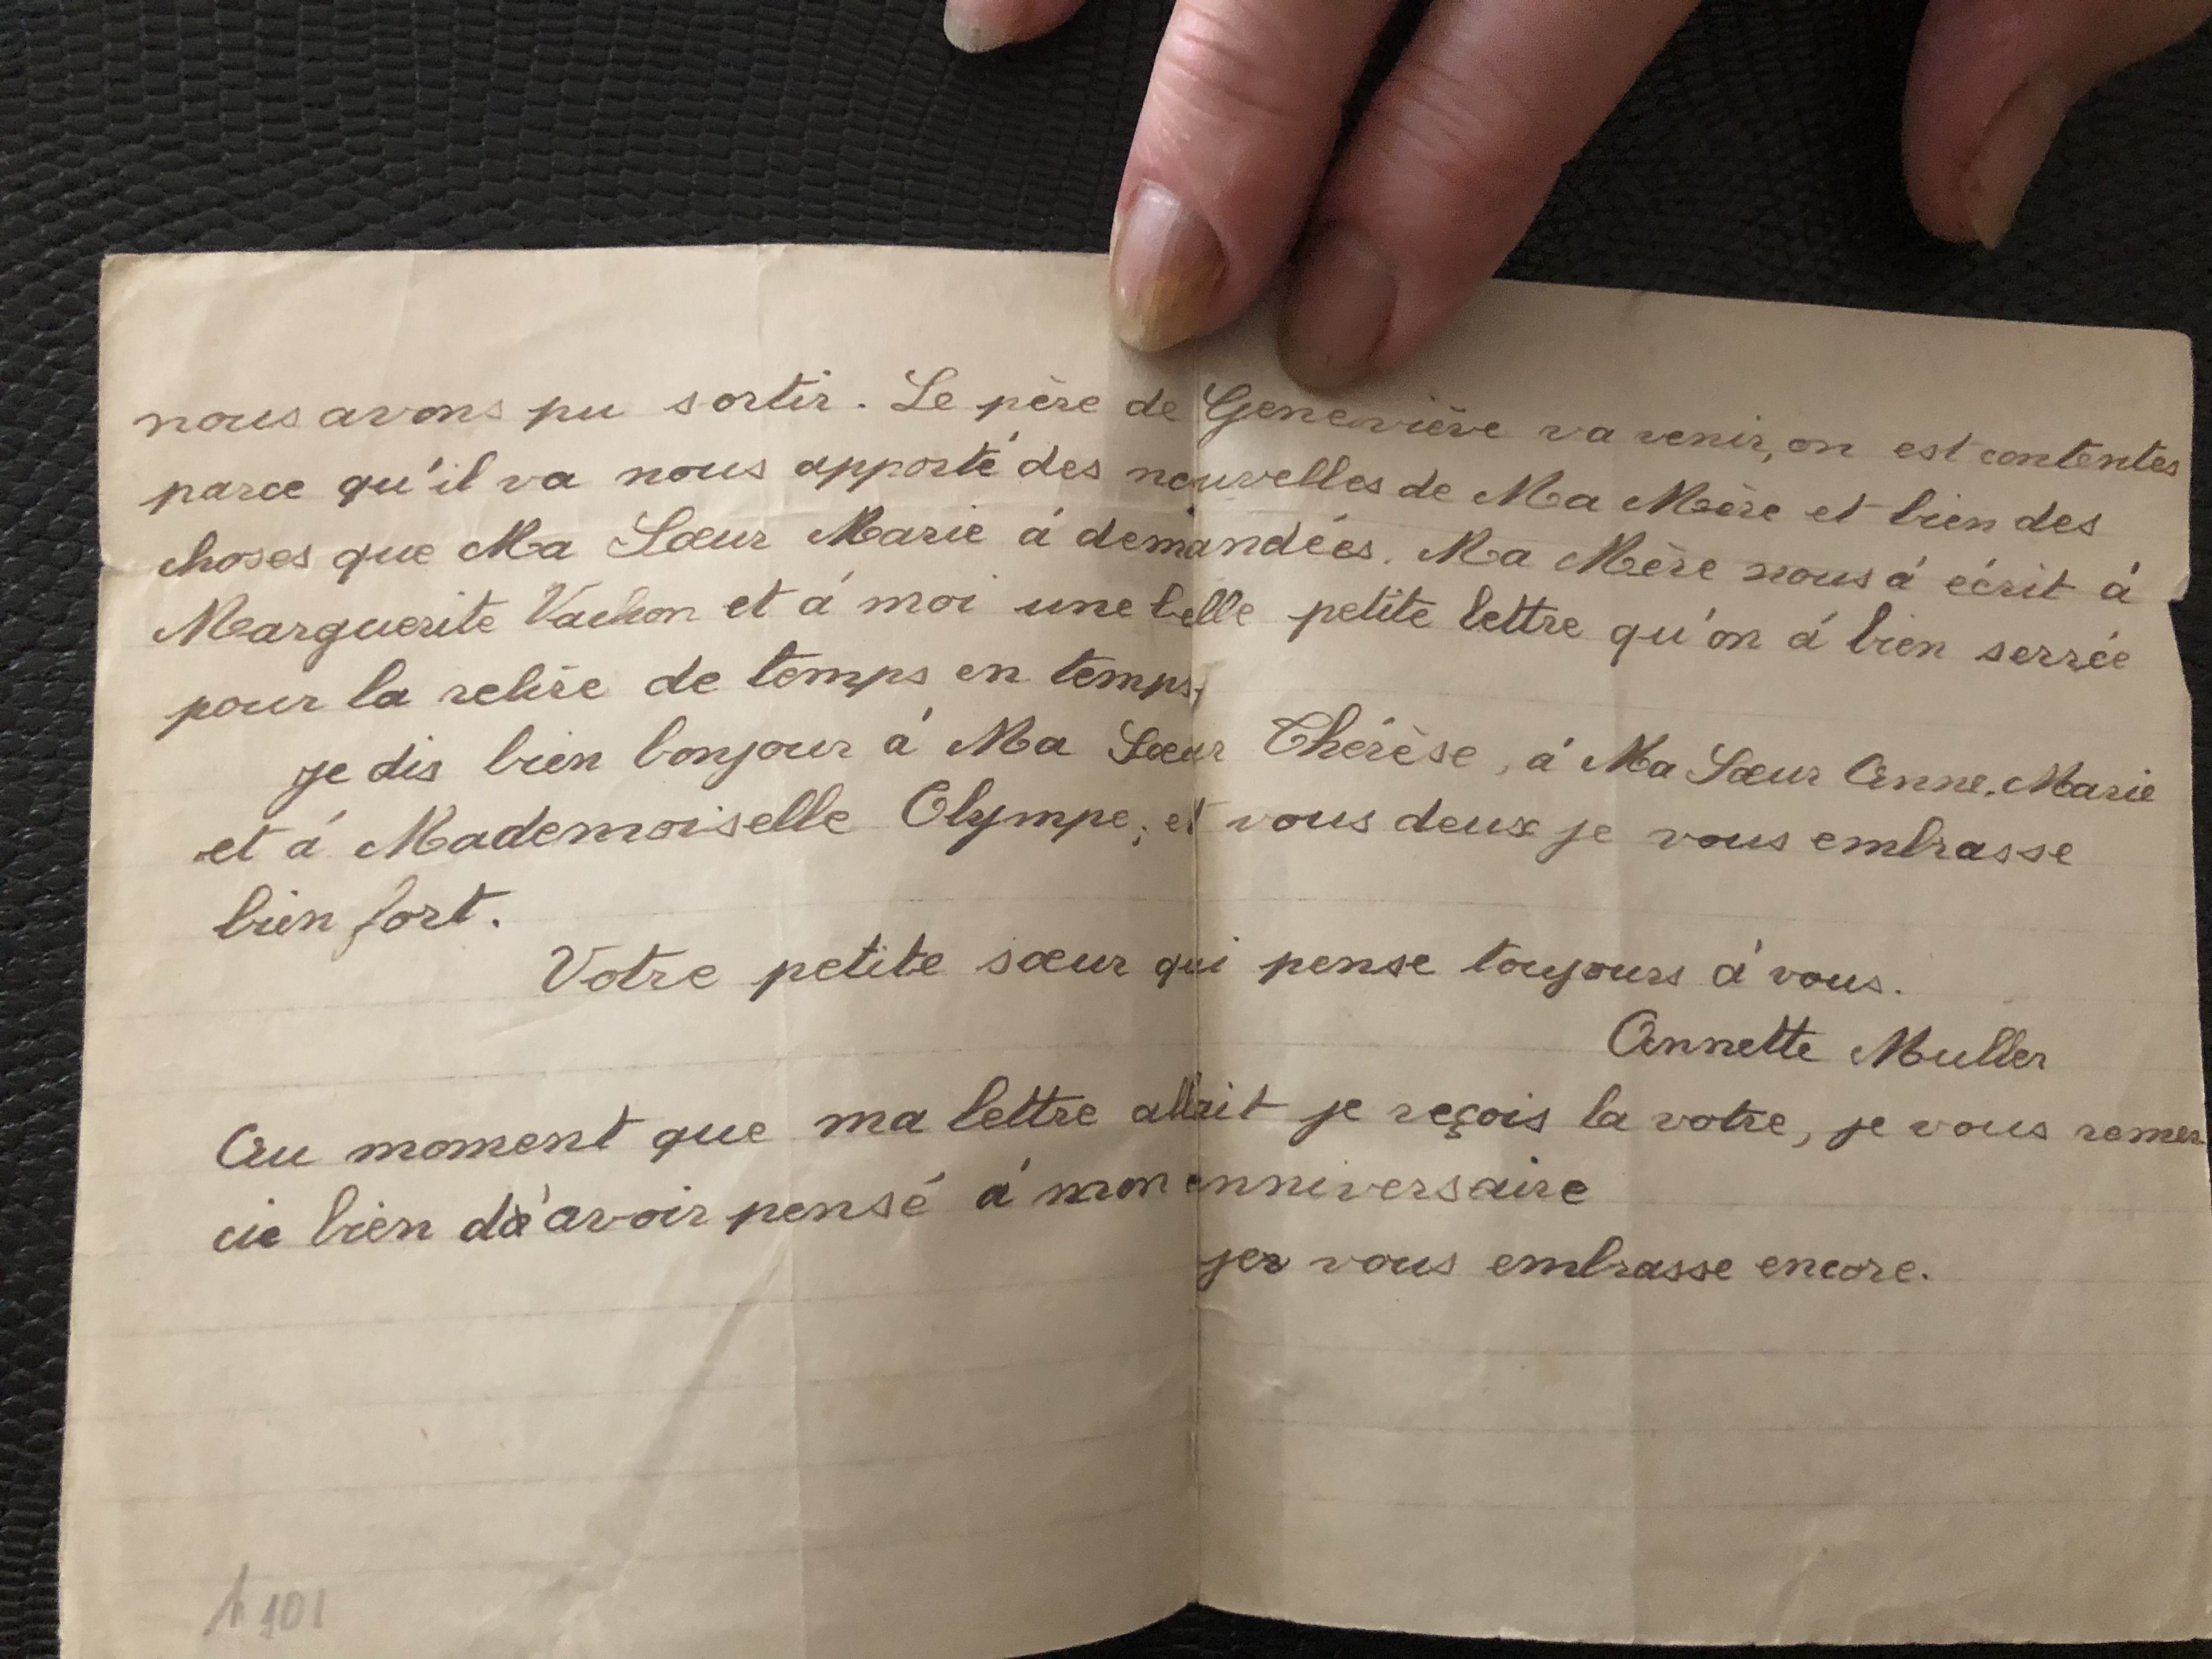 nous avons pu sortir. Le père de Geneviève va venir, on est contentes
parce qu'il va nous apporté des nouvelles de Ma Mère et bien des
choses que Ma Sœur Marie á demandées. Ma Mère nous á écrit á
Marguerite Vachon et á moi une belle petite lettre qu'on á bien serrée
pour la relire de temps en temps.
je dis bien bonjour á Ma Sœur Thérèse, á Ma Sœur Anne.Marie
et á Mademoiselle Olympe, et vous deux je vous embrasse
bien fort.
Votre petite sœur qui pense toujours á vous.
Annette Muller
Au moment que ma lettre allait je reçois la votre, je vous remer
cie bien d'avoir pensé á mon enniversaire
je vous embrasse encore.
101